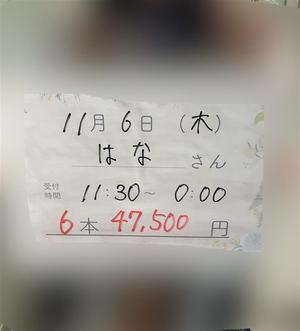 11月6日 (木)
はな さん
受付時間 11:30~ 0:00
6本 47,500 円